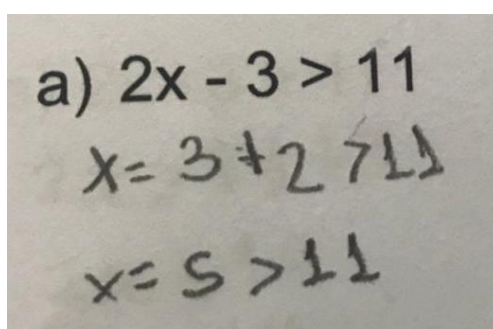 a) 2x - 3 > 11
x = 3 + 2 > 11
x = 5 > 11